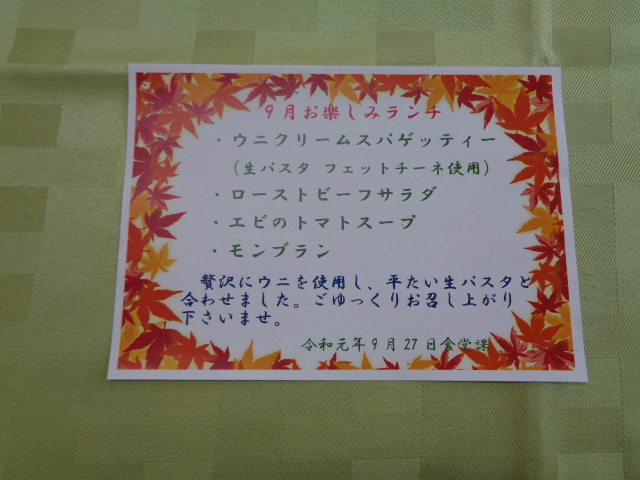 9月お楽しみランチ
・ウニクリームスパゲッティー
（生パスタ フェットチーネ使用）
・ローストビーフサラダ
・エビのトマトスープ
・モンブラン
贅沢にウニを使用し、平たい生パスタと
合わせました。ごゆっくりお召し上がり
下さいませ。
令和元年9月27日食堂課